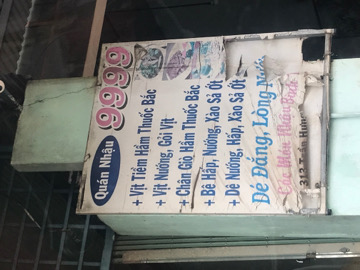 Quán Nhậu
9999
+ Vịt Tiềm Hầm Thuốc Bắc
+ Vịt Nướng, Gỏi Vịt
+ Chân Giò Hầm Thuốc Bắc
+ Bê Hấp, Nướng, Xào Sả Ớt
+ Dê Nướng, Hấp, Xào Sả Ớt
Dế Đáng, Lòng Nướng
Các Món Nhậu Bình